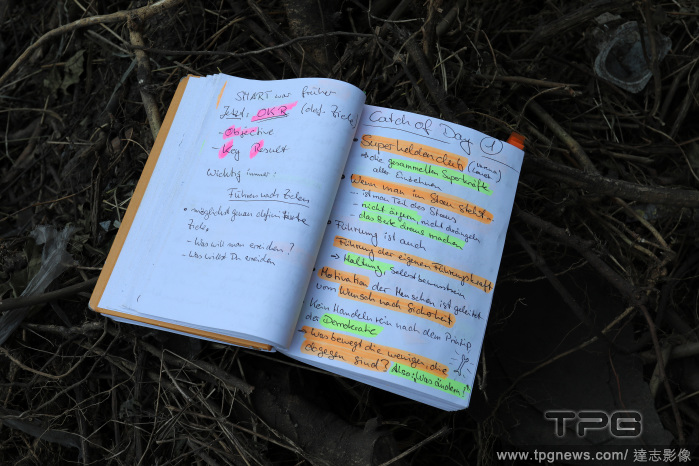 SMART war früher
Jetzt: OKR (def. Ziele)
- Objective
- Key Result
Wichtig immer:
Führen nach Zielen
• möglichst genau definierte
Ziele
- Was will man erreichen?
- Was willst Du erreichen
Catch of Day 1
• Superheldenclub
→ die gesammelten Superkräfte
aller Entehmen
• Wenn man im Stau steht..
- ist man Teil des Staus
- nicht ärgern, nicht drängeln
- das Beste draus machen
• Führung ist auch
Führung der eigenen Führungskraft
→ Haltung, Selbstbewusstsein
• Motivation der Menschen ist geleitet
vom Wunsch nach Sicherheit
• Kein Handeln rein nach dem Prinzip
der Demokratie
→ Was bewegt die wenigen, die
dagegen sind? Also: Was ändern!
TPG
www.tpgnews.com/ 達志影像